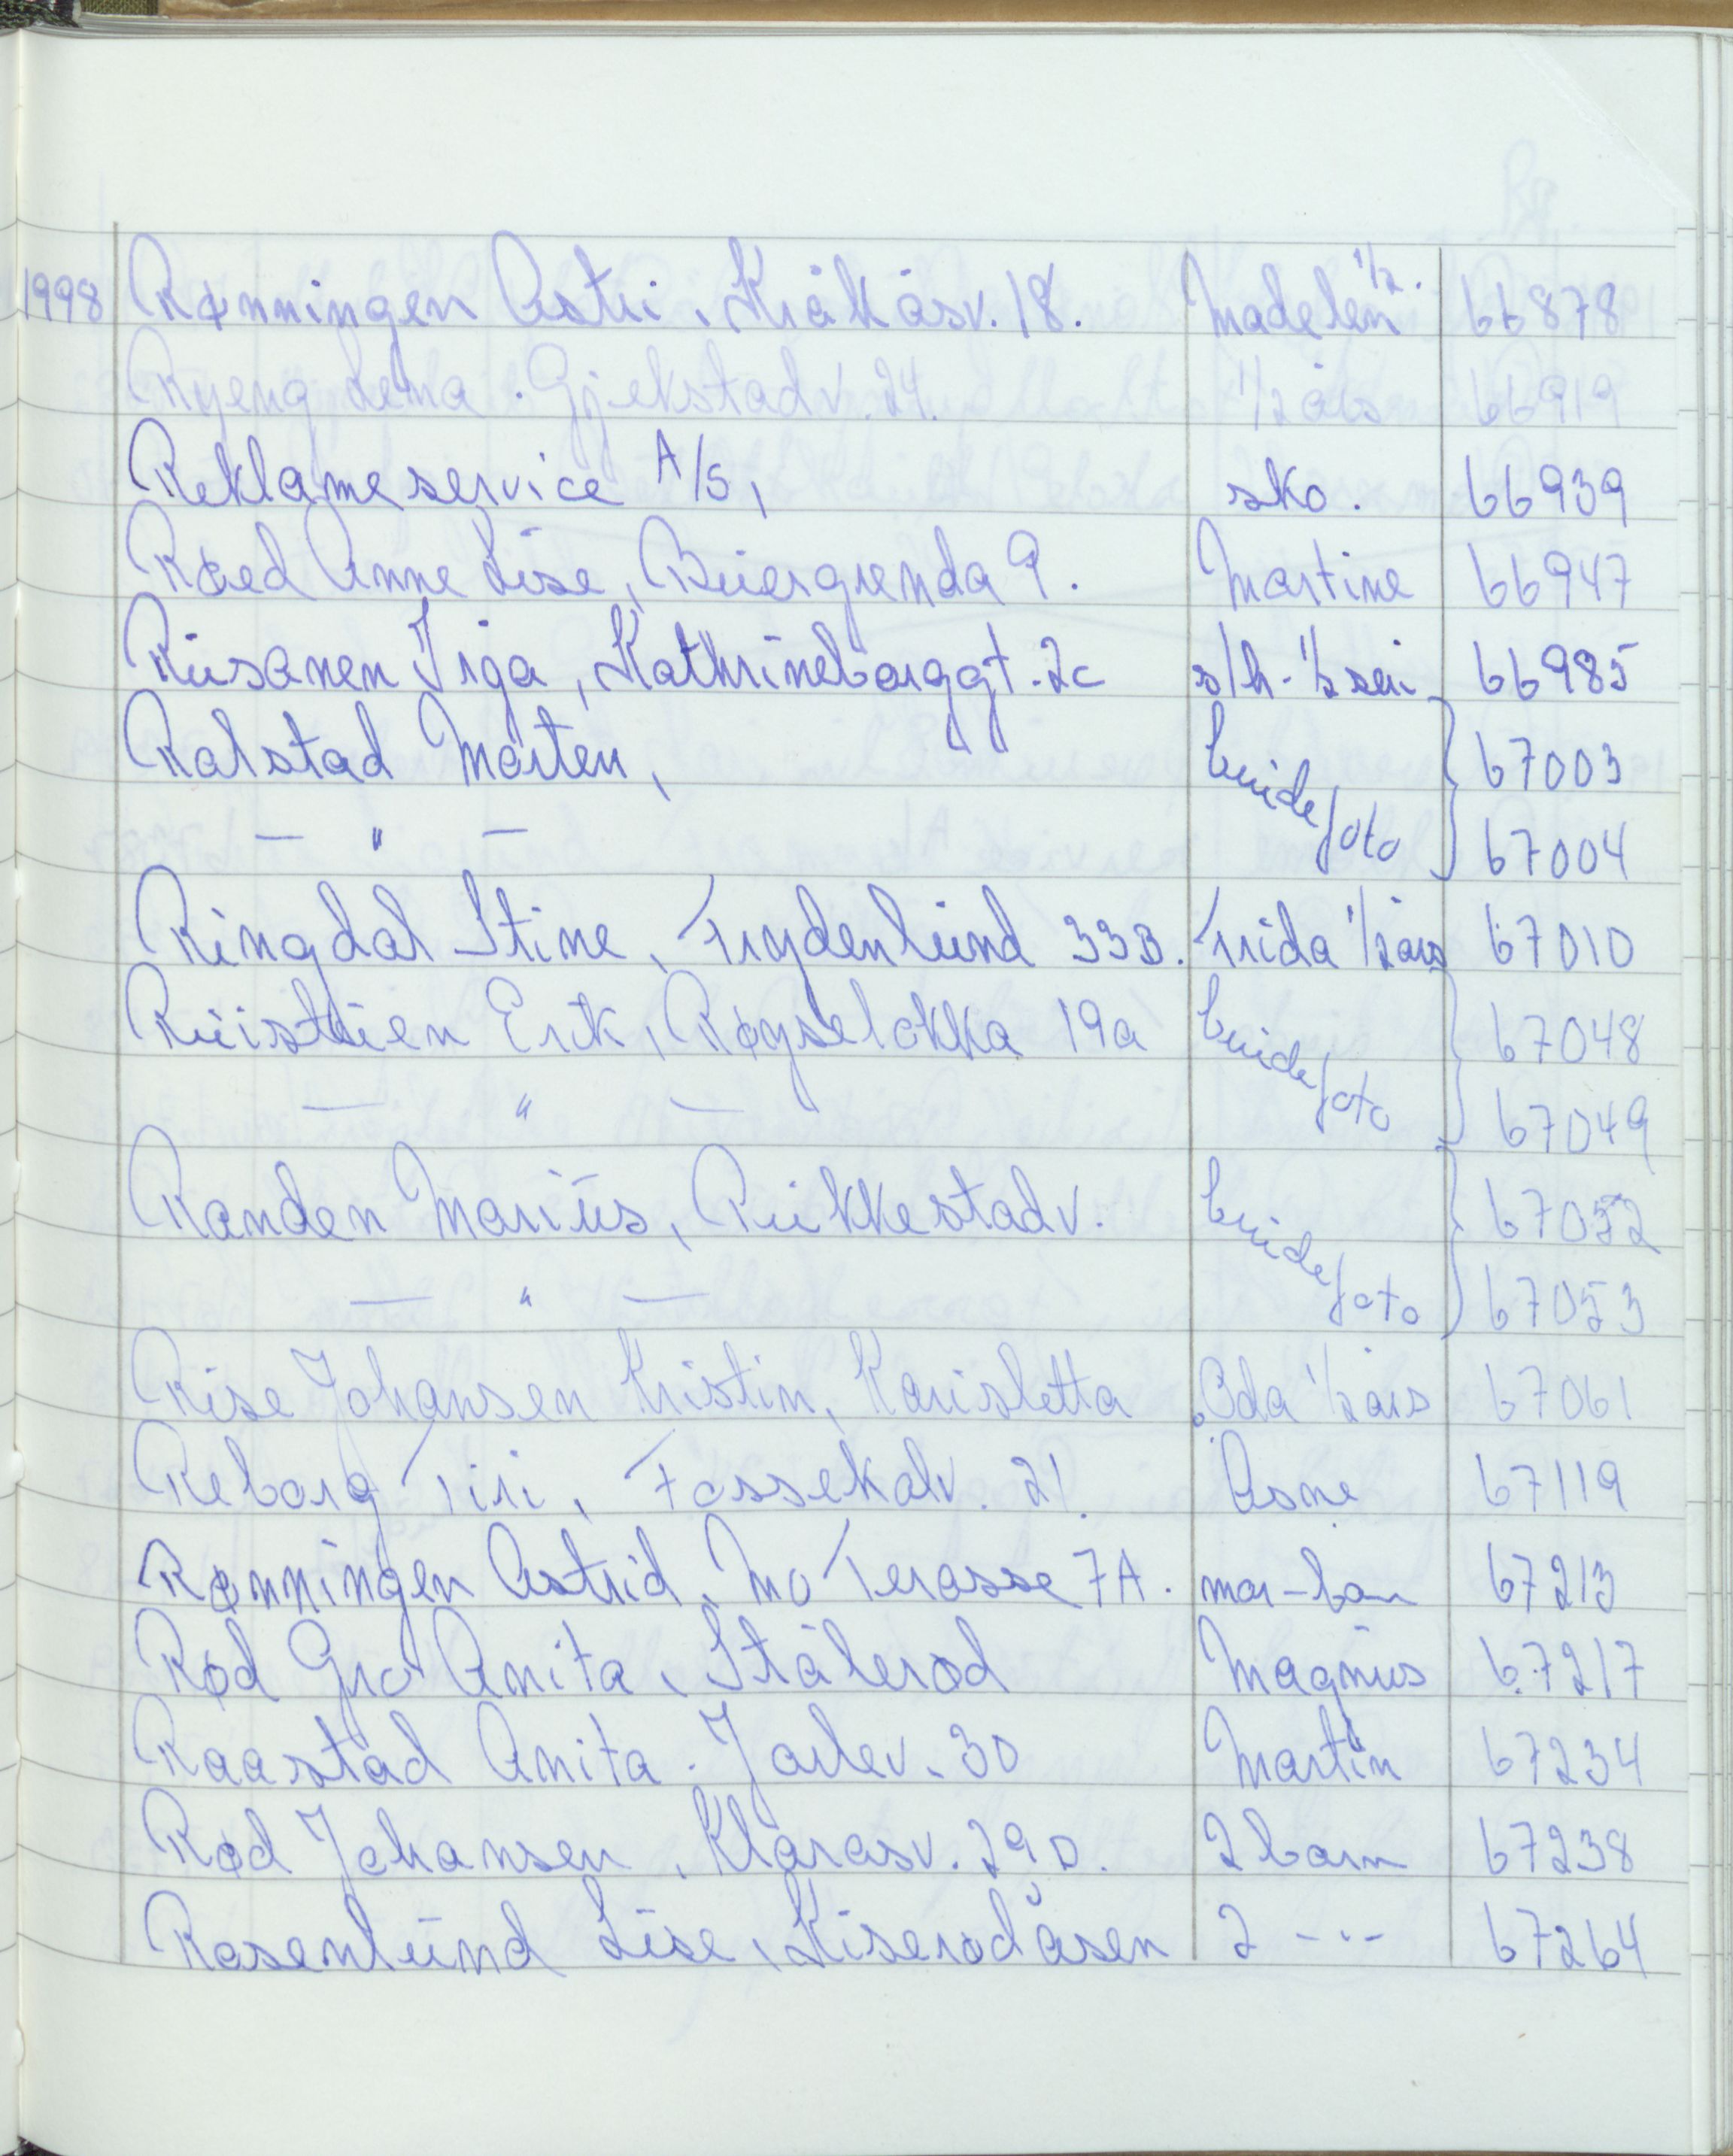 1998 Rønningen Astri, Kråkåsv. 18. Madelen 1/2. 66878
Ryeng Lena. Gjekstadv. 24. 1/2 års 66919
Reklameservice A/S, sko. 66939
Røed Anne Lise, Buergrenda 9. Martine 66947
Riisanen Irja, Kathrineborggt. 2c s/h - 1/2 seri 66985
Ralstad Morten, brudefoto 67003
— " — 67004
Ringdal Stine, Frydenlund 33B. Frida 1/2 års 67010
Erik, Røyseløkka 19a brudefoto 67048
— " — 67049
Randen Marius, Pukkestadv. brudefoto 67052
— " — 67053
Rise Johansen Kristin, Karisletta Oda 1/2 års 67061
Reborg Tiri, Fossekalv. 21. Åsne 67119
Rønningen Astrid, Mo Terasse 7A. mor-barn 67213
Rød Gro Anita, Stålerød Magnus 67217
Raastad Anita. Jarlev. 30 Martin 67234
Rød Johansen, Klaråsv. 29D. 2 barn 67238
Rosenlund Lise, Kiserødåsen 2 -"- 67264